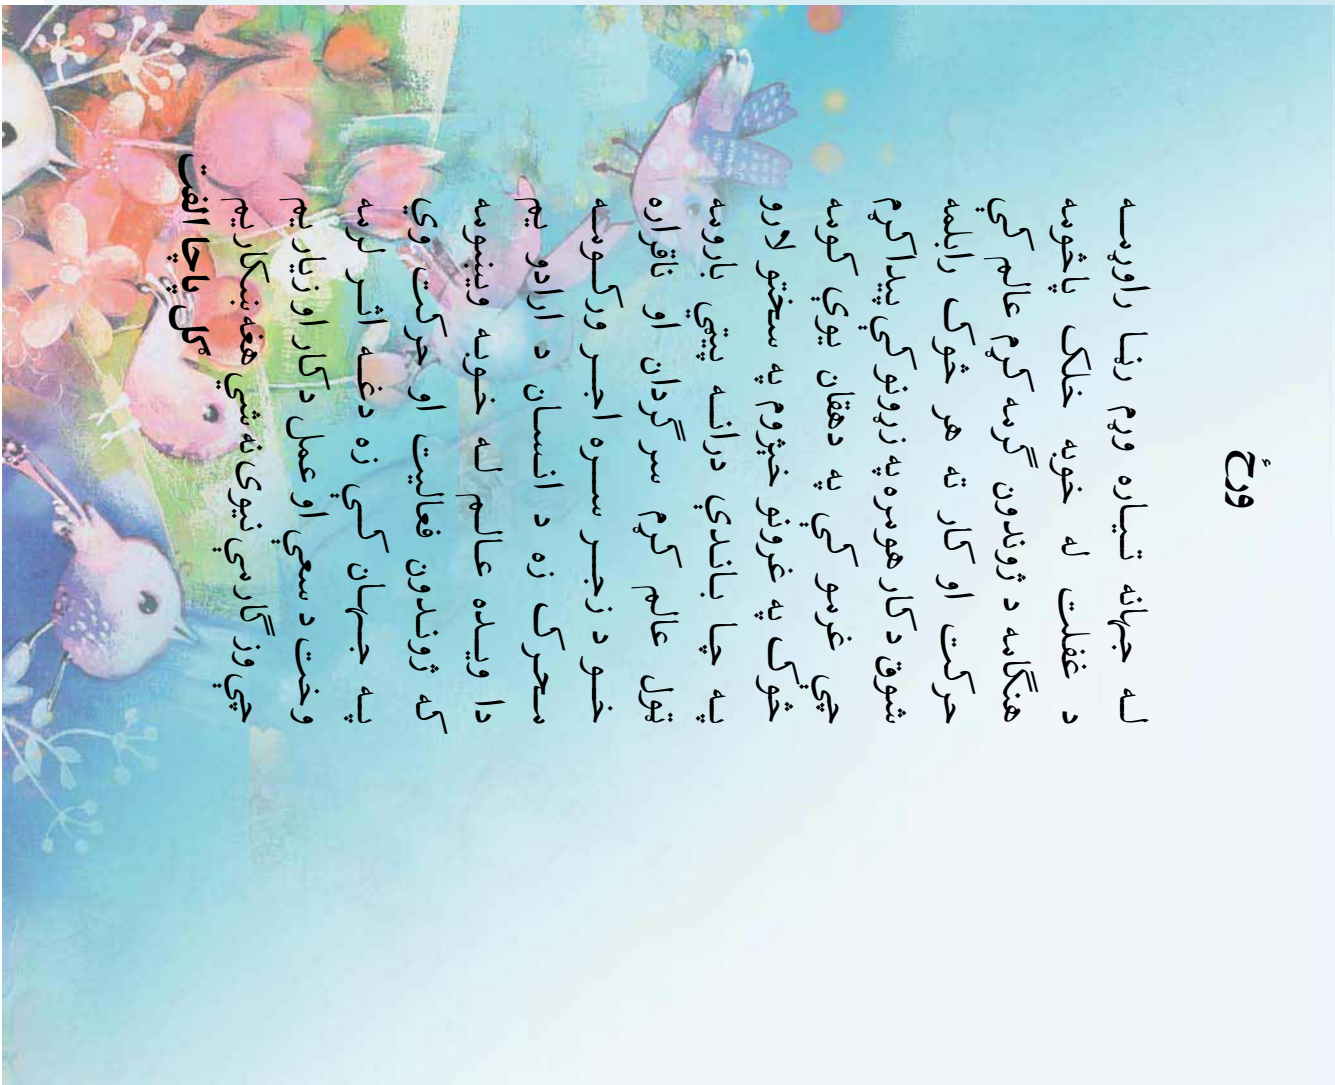 ورځ
له جهانه تياره وړم رڼا راوړمه
د غفلت له خوبه خلک پاڅومه
هنګامه د ژوندون ګرمه کړم عالم کې
حرکت او کار ته هر څوک رابلمه
شوق د کار هومره په زړونو کې پيدا کړم
چې غرمو کې په دهقان يوې کومه
څوک په غرونو خېژوم په سختو لارو
په چا باندې درانه پېټي بارومه
ټول عالم کړم سر ګردان او ناقراره
خو د زجر سره اجر ورکومه
محرک زه د انسان د ارادو يم
دا ويده عالم له خوبه ويښومه
که ژوندون فعاليت او حرکت وي
په جهان کې زه دغه اثر لرمه
وخت د سعې او عمل د کار او زيار يم
چې وزګار سړي نيوی نه شي هغه ښکار يم
ګل پاچا الفت